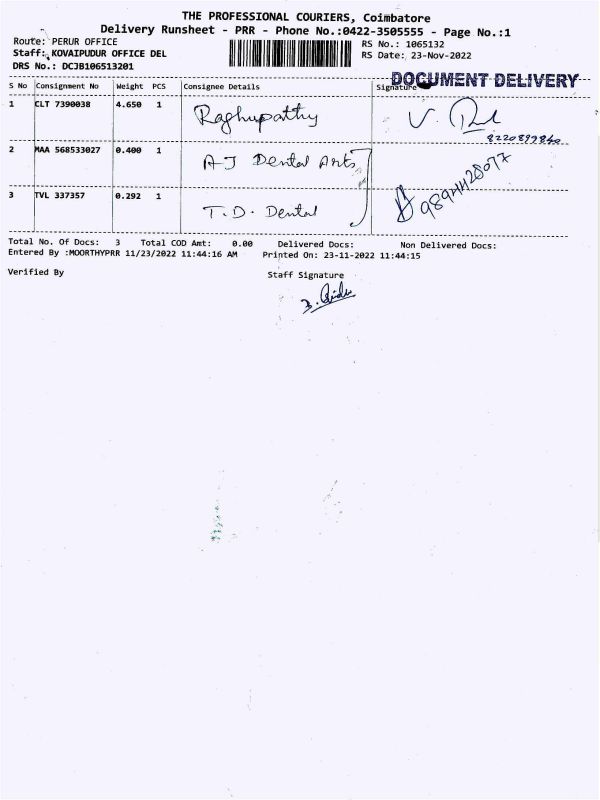 THE PROFESSIONAL COURIERS, Coimbatore
Delivery Runsheet - PRR - Phone No.:0422-3505555 - Page No.:1
Route: PERUR OFFICE
RS No.: 1065132
Staff: KOVAIPUDUR OFFICE DEL
RS Date: 23-Nov-2022
DRS No.: DCJB106513201
DOCUMENT DELIVERY
S No Consignment No Weight PCS Consignee Details Signature
1 CLT 7390038 4.650 1 Raghupathy
8220899840
2 MAA 568533027 0.400 1 AJ Dental Arts
9894428077
3 TVL 337357 0.292 1 T.D. Dental
Total No. Of Docs: 3 Total COD Amt: 0.00 Delivered Docs: Non Delivered Docs:
Entered By :MOORTHYPRR 11/23/2022 11:44:16 AM Printed On: 23-11-2022 11:44:15
Verified By Staff Signature